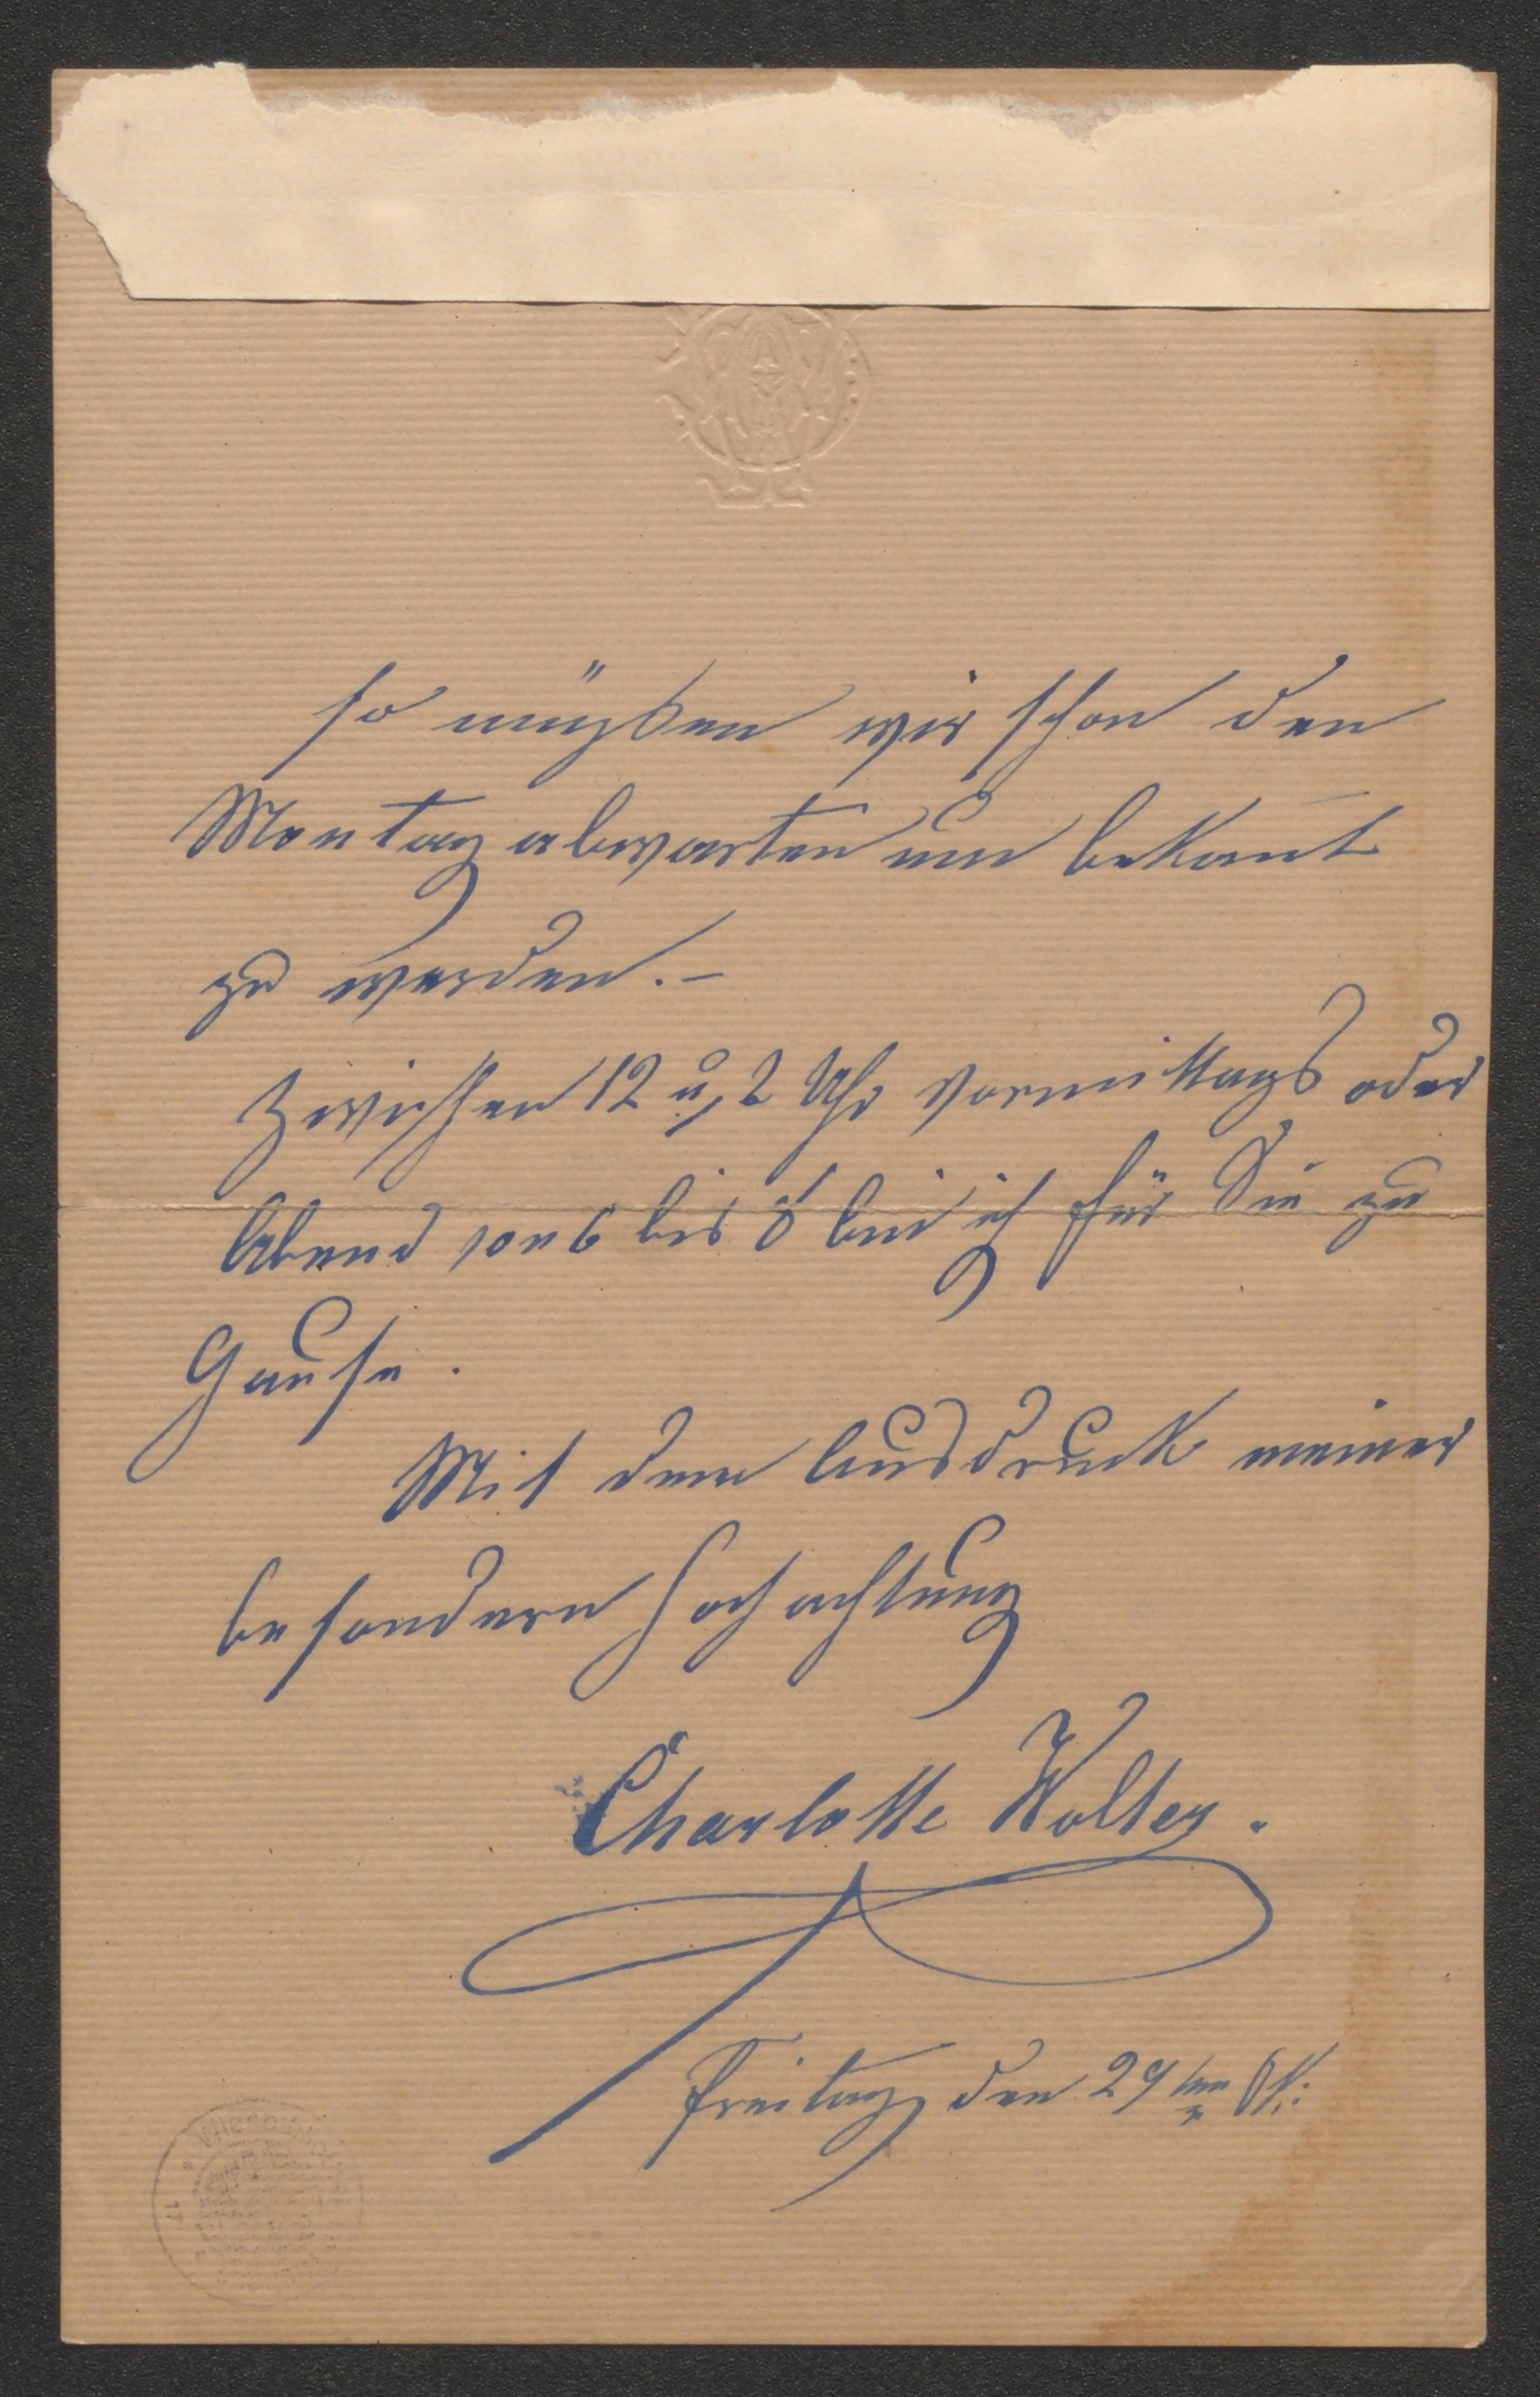 so müßen wir schon den
Montag abwarten um bekant
zu werden. –
Zwischen 12 u, 2 Uhr Vormittags oder
Abend von 6 bis 8 bin ich für Sie zu
Hause.
Mit dem Ausdruck meiner
besondern Hochachtung
Charlotte Wolter.
Freitag den 29ten